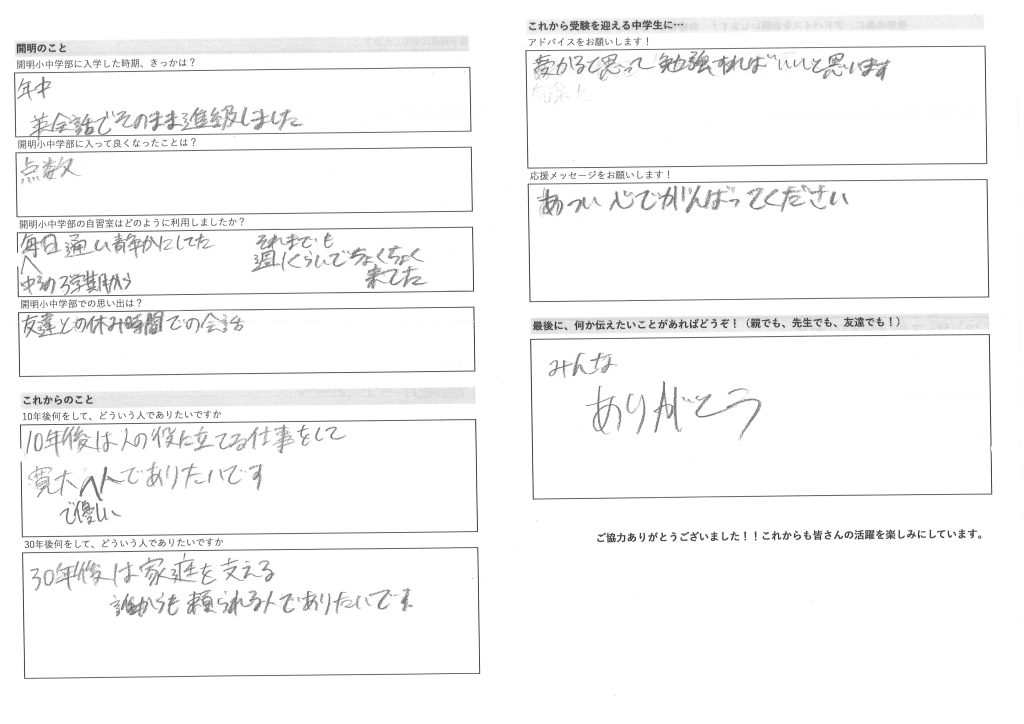 開明のこと
開明小中学部に入学した時期、きっかは？
年中
英会話でそのまま進級しました
開明小中学部に入って良くなったことは？
点数
開明小中学部の自習室はどのように利用しましたか？
毎日通い
にしてた
中3の3学期から
それまでも
週1くらいでちょくちょく
来てた
開明小中学部での思い出は？
友達との休み時間での会話
これからのこと
10年後何をして、どういう人でありたいですか
10年後は人の役に立てる仕事をして
寛大で優しい人でありたいです
30年後何をして、どういう人でありたいですか
30年後は家庭を支える
誰からも頼られる人でありたいです
これから受験を迎える中学生に…
アドバイスをお願いします！
受かると思って勉強すればいいと思います
応援メッセージをお願いします！
あつい心でがんばってください
最後に、何か伝えたいことがあればどうぞ！（親でも、先生でも、友達でも！）
みんな
ありがとう
ご協力ありがとうございました！！これからも皆さんの活躍を楽しみにしています。